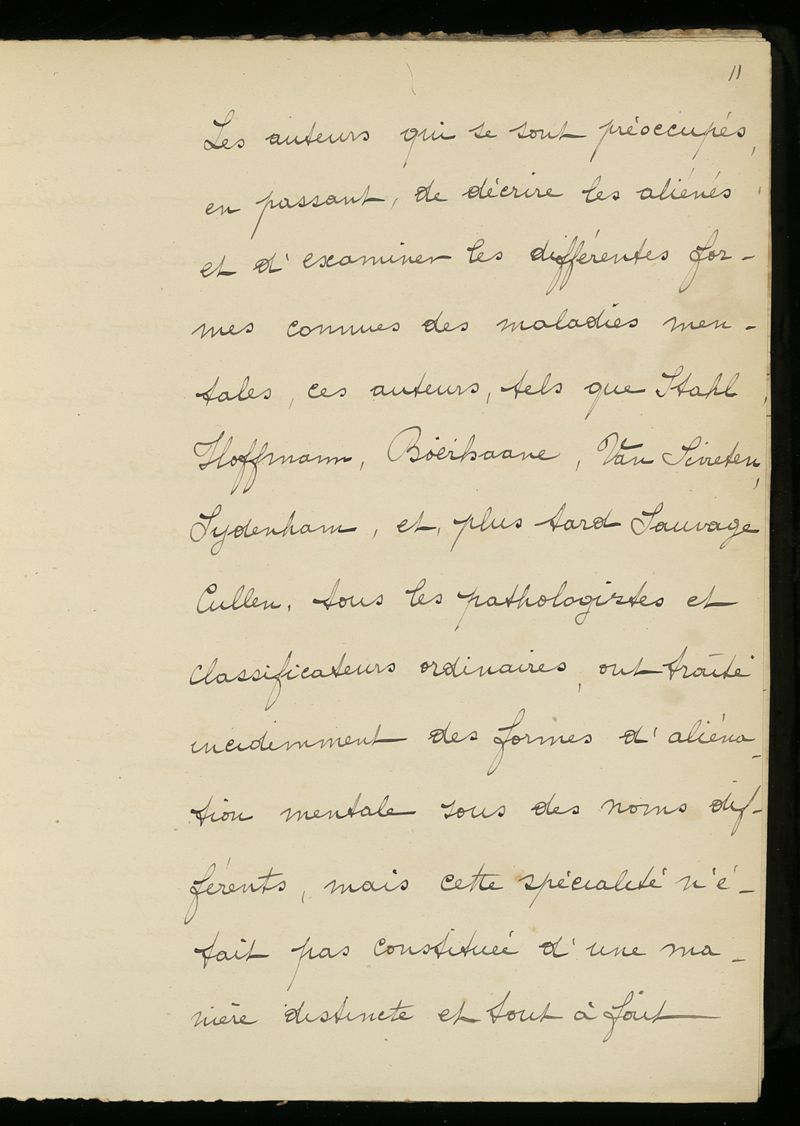 11
Les auteurs qui se sont préoccupés,
en passant, de décrire les aliénés
et d'examiner les différentes for-
mes connues des maladies men-
tales, ces auteurs, tels que Stahl,
Hoffmann, Boërhaave, Van Swieten,
Sydenham, et, plus tard Sauvage
Cullen, tous les pathologistes et
classificateurs ordinaires, ont traité
incidemment des formes d'aliéna-
tion mentale sous des noms dif-
férents, mais cette spécialité n'é-
tait pas constituée d'une ma-
nière distincte et tout à fait